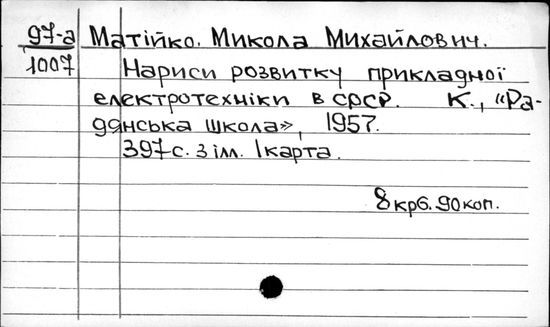 97-а Матійко. Микола Михайлович.
1007 Нариси розвитку прикладної
електротехніки в СРСР. К., «Ра-
дянська школа», 1957.
397 с. з ілл. 1 карта.
8 крб. 90 коп.